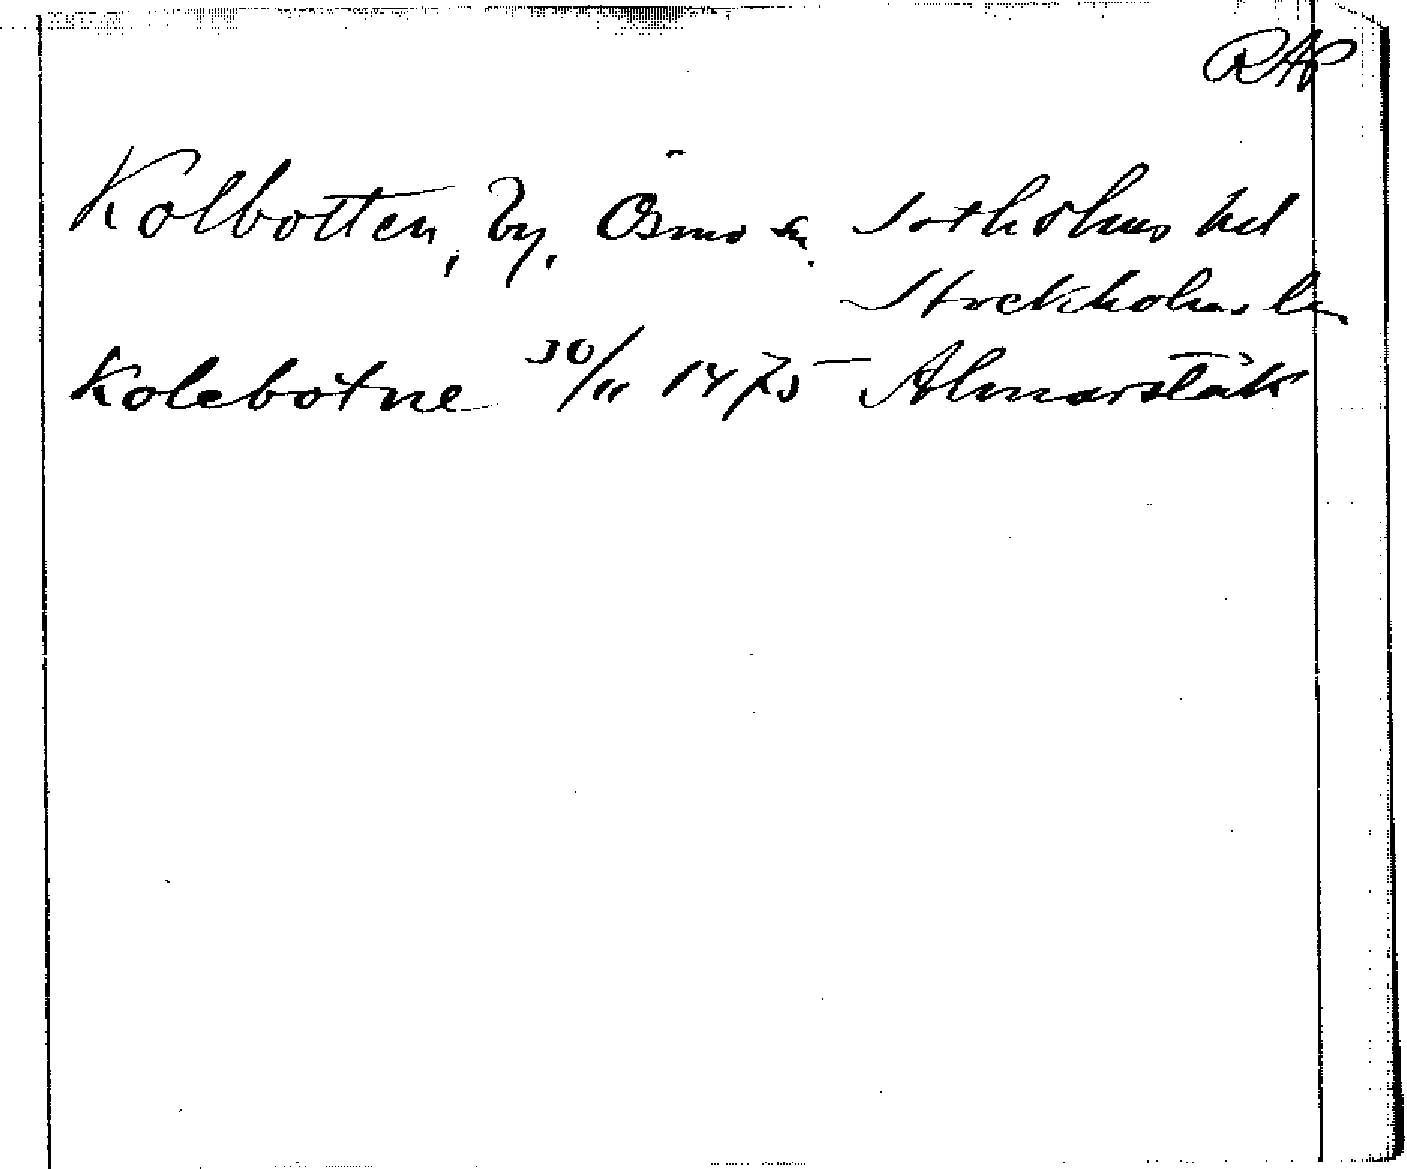 RAP
Kolbotten, by, Ösmo sn. Sotholms hd
Stockholms ln
Kolebotne 30/11 1475 Almarstäk